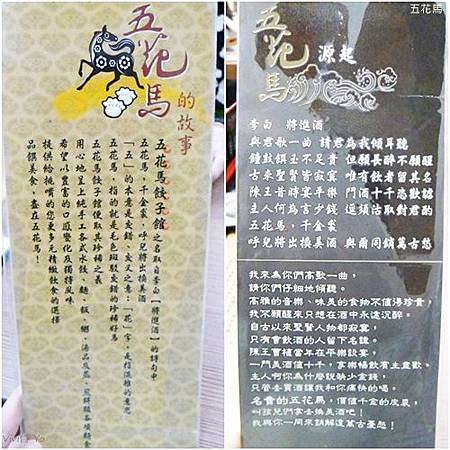 五花馬
的故事
五花馬餃子館之名取自李白【將進酒】的詩句中
五花馬，千金裘，呼兒將出換美酒
「五」的本意是交錯、交叉之意；「花」字，是指混雜的意思
五花馬，指的就是毛色斑駁交錯的珍稀好馬
五花馬餃子館便取其珍稀之義
用心地呈上純手工各式水餃、麵、飯、粥、湯品及蒸、煎餅類各項麵食
希望以豐富的口感變化及獨特風味
提供給挑嘴的您更多元精緻飲食的選擇
品饌美食，盡在五花馬！
五花馬
五花馬
源起
李白 將進酒
與君歌一曲 請君為我傾耳聽
鐘鼓饌玉不足貴 但願長醉不願醒
古來聖賢皆寂寞 唯有飲者留其名
陳王昔時宴平樂 斗酒十千恣歡謔
主人何為言少錢 逕須沽取對君酌
五花馬，千金裘
呼兒將出換美酒 與爾同銷萬古愁
我來為你們高歌一曲，
請你們仔細地傾聽。
高雅的音樂、味美的食物不值得珍貴，
我不願醒來只想在酒中永遠沉醉。
自古以來聖賢人物都寂寞，
只有會飲酒的人留下名諱。
陳王曹植當年在平樂設宴，
一鬥美酒值十千，賓樂暢飲有主盡歡。
主人何你為什麼說缺少金錢，
只管去買酒讓我和你痛快的喝。
名貴的五花馬，價值千金的皮裘，
叫孩兒們拿去換美酒吧！
我與你一同來銷解這萬古憂愁！